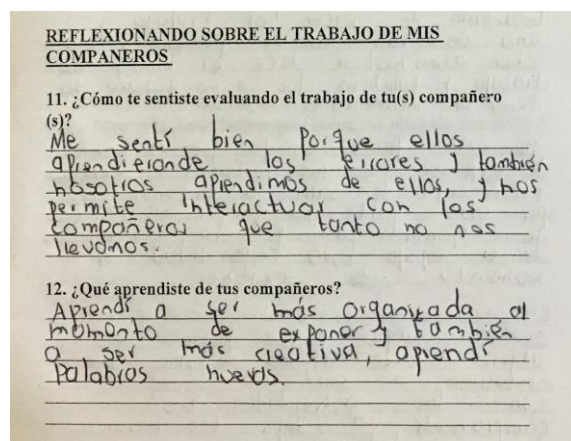 REFLEXIONANDO SOBRE EL TRABAJO DE MIS
COMPANEROS
11. ¿Cómo te sentiste evaluando el trabajo de tu(s) compañero
(s)?
Me sentí bien porque ellos
aprendieronde los errores y también
nosotros aprendimos de ellos, y nos
permite interactuar con los
compañeros que tanto no nos
llevamos.
12. ¿Qué aprendiste de tus compañeros?
Aprendí a ser más organizada al
momento de exponer y también
a ser más creativa, aprendí
Palabras nuevas.